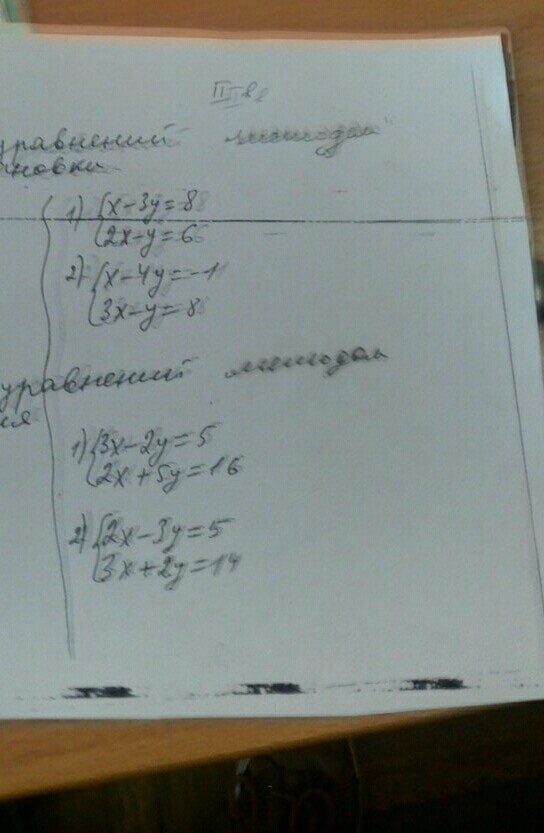 II-в.
уравнений методом
ановки
1) {x-3y=8
{2x-y=6
2) {x-4y=-1
{3x-y=8
уравнений методом
ия
1) {3x-2y=5
{2x+5y=16
2) {2x-3y=5
{3x+2y=14